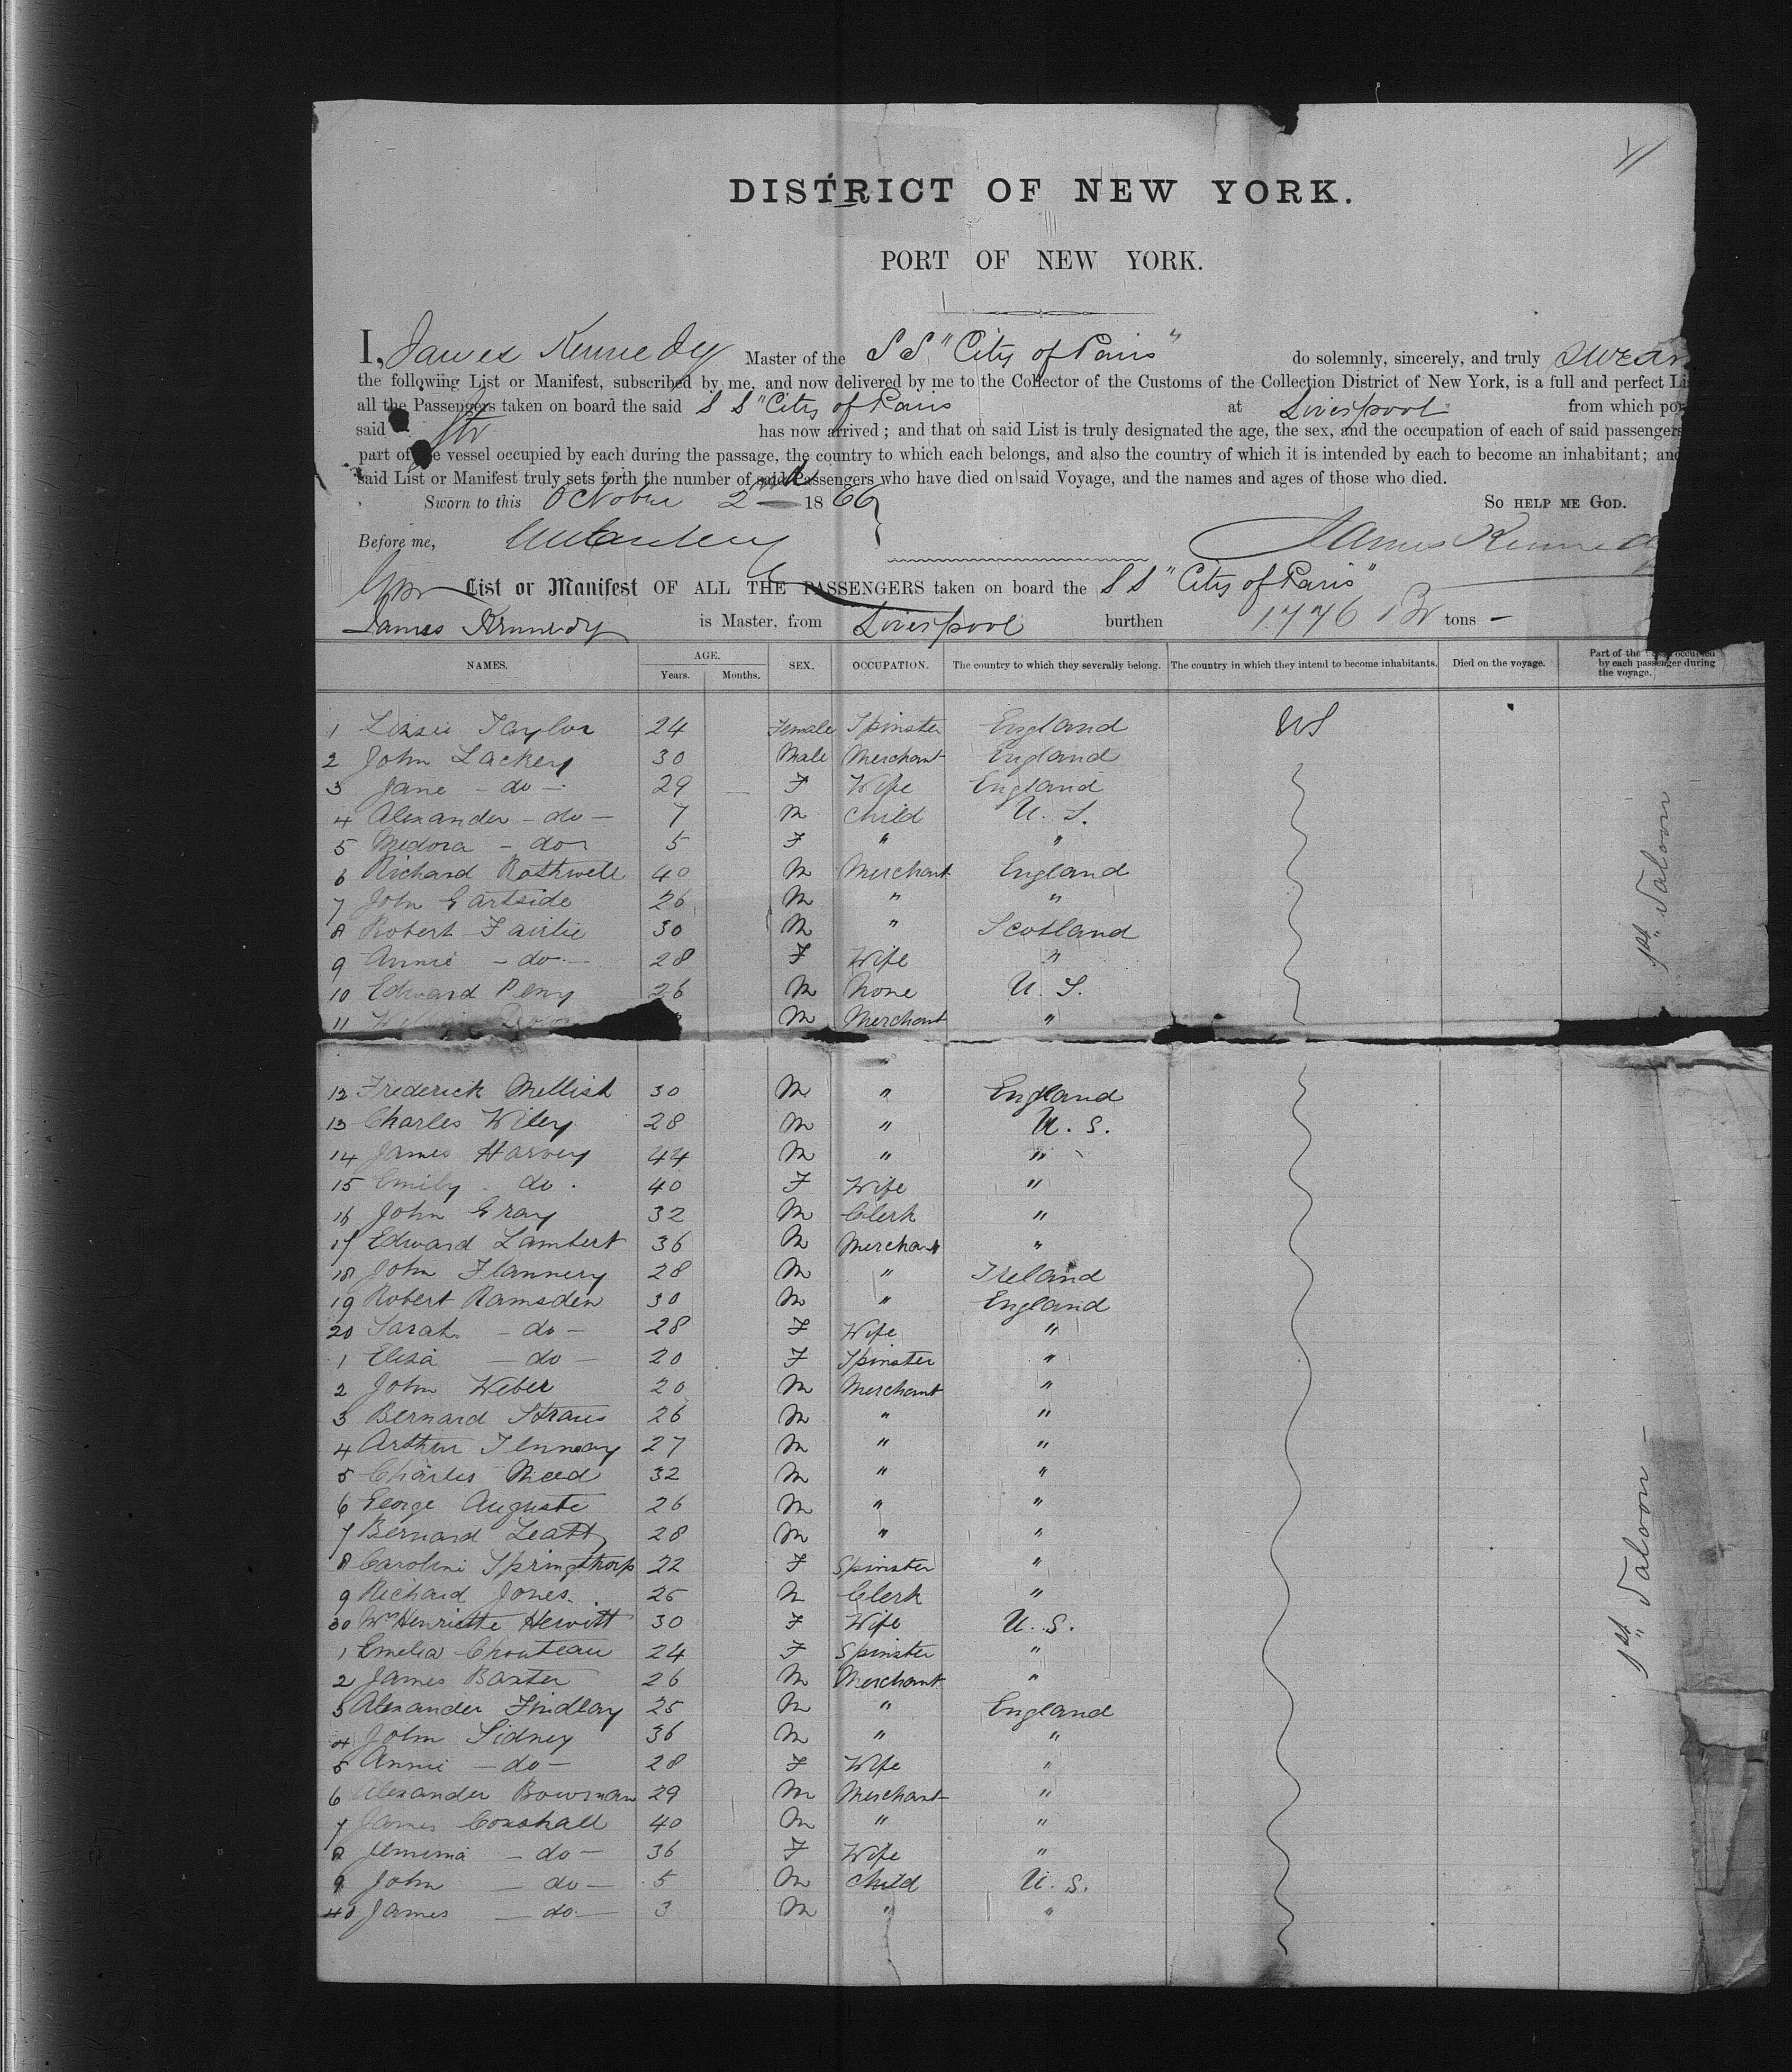 DISTRICT OF NEW YORK.
PORT OF NEW YORK.
I, James Kennedy Master of the S S "City of Paris" do solemnly, sincerely, and truly swear
the following List or Manifest, subscribed by me, and now delivered by me to the Collector of the Customs of the Collection District of New York, is a full and perfect
all the Passengers taken on board the said S S "City of Paris at Liverpool from which
said Str has now arrived; and that on said List is truly designated the age, the sex, and the occupation of each of said passengers
part of vessel occupied by each during the passage, the country to which each belongs, and also the country of which it is intended by each to become an inhabitant; and
said List or Manifest truly sets forth the number of said Passengers who have died on said Voyage, and the names and ages of those who died.
Sworn to this October 2nd 1866 So help me God.
Before me, James Kennedy
List or Manifest OF ALL THE PASSENGERS taken on board the S S "City of Paris"
James Kennedy is Master, from Liverpool burthen 1776 tons -
NAMES. AGE. Years. Months. SEX. OCCUPATION. The country to which they severally belong. The country in which they intend to become inhabitants. Died on the voyage. Part of the occupied by each passenger during the voyage.
1 Lizzie Taylor 24 Female Spinster England US
2 John Lackey 30 Male Merchant England
3 Jane - do - 29 — F Wife England
4 Alexander - do - 7 M Child U. S.
5 Medora - do - 5 F " "
6 Richard Rothwell 40 M Merchant England
7 John Gartside 26 M " "
8 Robert Fairlie 30 M " Scotland
9 Annie - do - 28 F Wife "
10 Edward Perry 26 M None U. S.
11 M Merchant "
1st Saloon
12 Frederick Mellish 30 M " England
13 Charles Wiley 28 M " U. S.
14 James Harvey 44 M " "
15 Emily do. 40 F Wife "
16 John Gray 32 M Clerk "
17 Edward Lambert 36 M Merchant "
18 John Flannery 28 M " Ireland
19 Robert Ramsden 30 M " England
20 Sarah - do - 28 F Wife "
1 Eliza - do - 20 F Spinster "
2 John Weber 20 M Merchant "
3 Bernard Straus 26 M " "
4 Arthur 27 M " "
5 Charles Meed 32 M " "
6 George Auguste 26 M " "
7 Bernard 28 M " "
8 Caroline Springthorp 22 F Spinster "
9 Richard Jones 25 M Clerk "
30 Henriette Hewitt 30 F Wife U. S.
1 Emelia Chouteau 24 F Spinster "
2 James Baxter 26 M Merchant "
3 Alexander Findlay 25 M " England
4 John Sidney 36 M " "
5 Annie - do - 28 F Wife "
6 Alexander Bowman 29 M Merchant "
7 James Coxshall 40 M " "
8 Jemima - do - 36 F Wife "
9 John - do - 5 M Child U. S.
40 James - do - 3 M " "
1st Saloon -